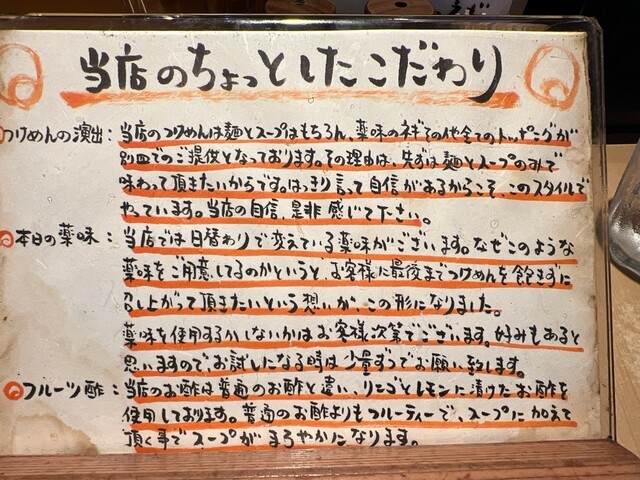 当店のちょっとしたこだわり
つけめんの演出：当店のつけめんは麺とスープはもちろん、薬味のネギその他全てのトッピングが
別皿でのご提供となっております。その理由は、先ずは麺とスープのみで
味わって頂きたいからです。はっきり言って自信があるからこそ、このスタイルで
やっています。当店の自信、是非感じて下さい。
本日の薬味：当店では日替わりで変えている薬味がございます。なぜこのような
薬味をご用意してるのかというと、お客様に最後までつけめんを飽きずに
召し上がって頂きたいという想いが、この形になりました。
薬味を使用するかしないかはお客様次第でございます。好みもあると
思いますので、お試しになる時は少量ずつでお願い致します。
フルーツ酢：当店のお酢は普通のお酢と違い、りんごとレモンに漬けたお酢を
使用しております。普通のお酢よりもフルーティーで、スープに加えて
頂く事でスープがまろやかになります。